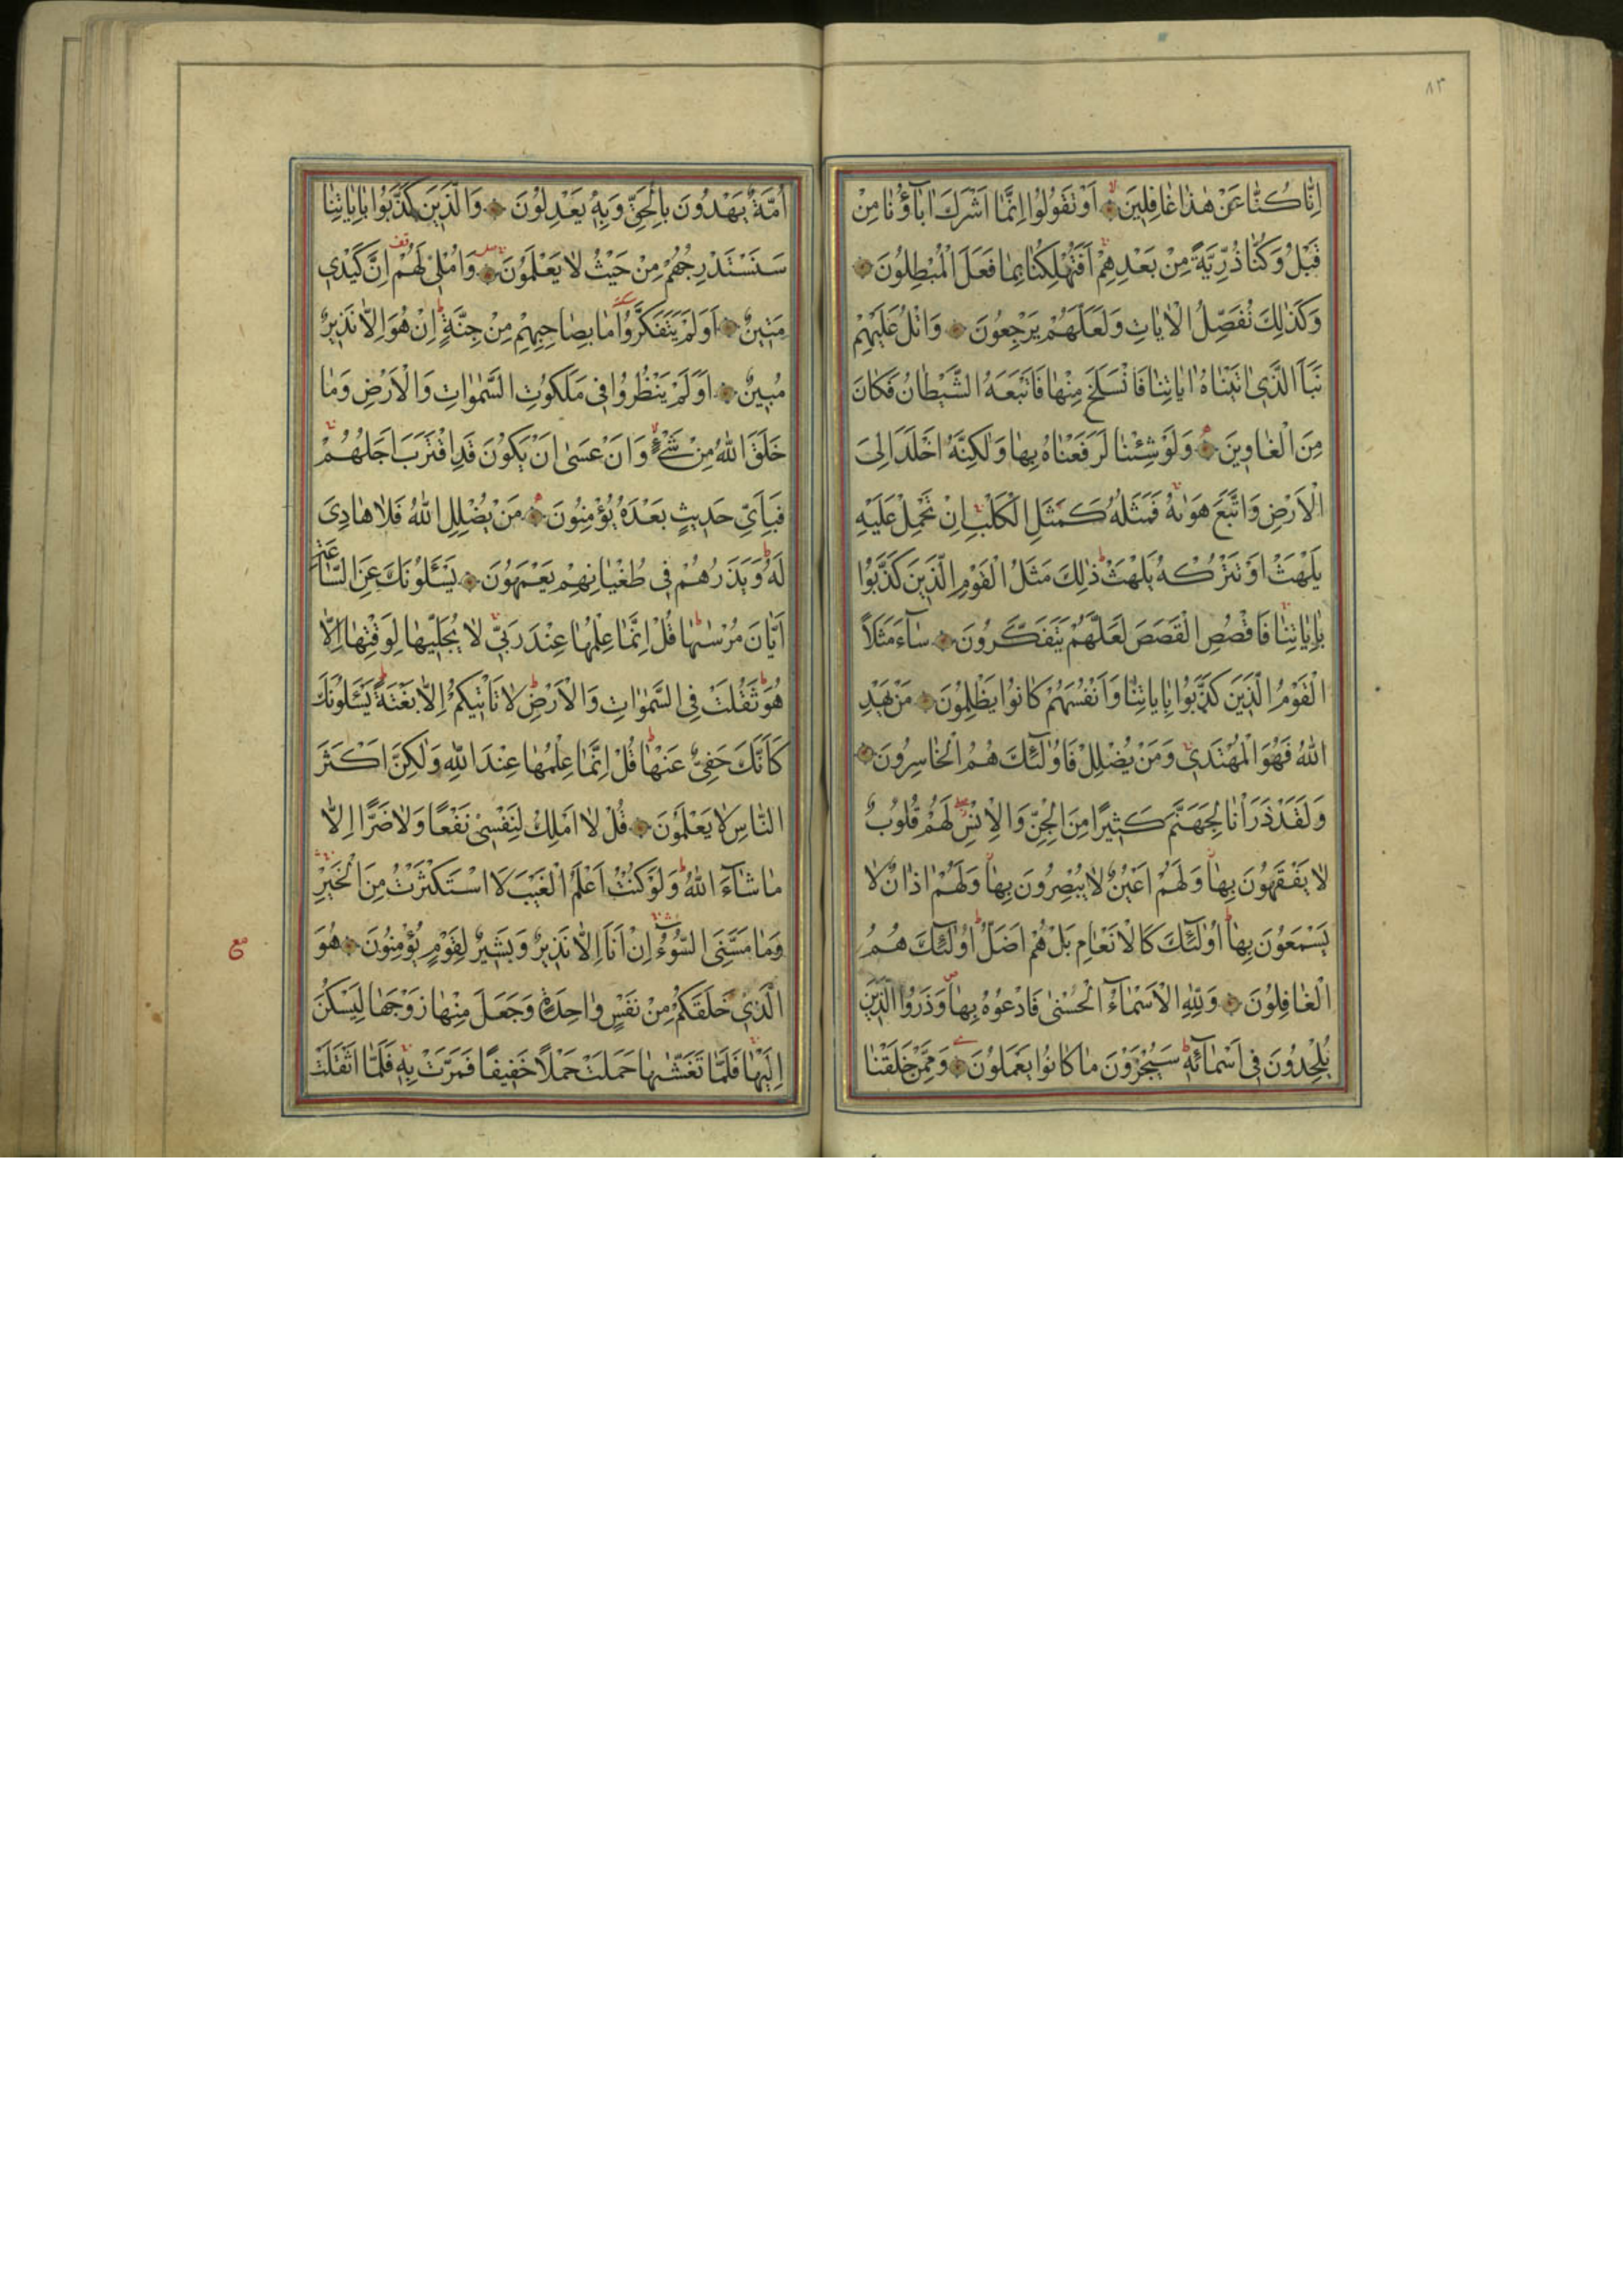 ٨٣
اِنَّا كُنَّا عَنْ هٰذَا غَافِلِينَ اَوْ تَقُولُوا اِنَّمَا اَشْرَكَ اٰبَاۤؤُنَا مِنْ
قَبْلُ وَكُنَّا ذُرِّيَّةً مِنْ بَعْدِهِمْ اَفَتُهْلِكُنَا بِمَا فَعَلَ الْمُبْطِلُونَ
وَكَذٰلِكَ نُفَصِّلُ الْاٰيَاتِ وَلَعَلَّهُمْ يَرْجِعُونَ وَاتْلُ عَلَيْهِمْ
نَبَاَ الَّذِي اٰتَيْنَاهُ اٰيَاتِنَا فَانْسَلَخَ مِنْهَا فَاَتْبَعَهُ الشَّيْطَانُ فَكَانَ
مِنَ الْغَاوِينَ وَلَوْ شِئْنَا لَرَفَعْنَاهُ بِهَا وَلٰكِنَّهُ اَخْلَدَ اِلَى
الْاَرْضِ وَاتَّبَعَ هَوٰيهُ فَمَثَلُهُ كَمَثَلِ الْكَلْبِ اِنْ تَحْمِلْ عَلَيْهِ
يَلْهَثْ اَوْ تَتْرُكْهُ يَلْهَثْ ذٰلِكَ مَثَلُ الْقَوْمِ الَّذِينَ كَذَّبُوا
بِاٰيَاتِنَا فَاقْصُصِ الْقَصَصَ لَعَلَّهُمْ يَتَفَكَّرُونَ سَاۤءَ مَثَلًا
الْقَوْمُ الَّذِينَ كَذَّبُوا بِاٰيَاتِنَا وَاَنْفُسَهُمْ كَانُوا يَظْلِمُونَ مَنْ يَهْدِ
اللّٰهُ فَهُوَ الْمُهْتَدِي وَمَنْ يُضْلِلْ فَاُولٰۤئِكَ هُمُ الْخَاسِرُونَ
وَلَقَدْ ذَرَاْنَا لِجَهَنَّمَ كَثِيرًا مِنَ الْجِنِّ وَالْاِنْسِ لَهُمْ قُلُوبٌ
لَا يَفْقَهُونَ بِهَا وَلَهُمْ اَعْيُنٌ لَا يُبْصِرُونَ بِهَا وَلَهُمْ اٰذَانٌ لَا
يَسْمَعُونَ بِهَا اُولٰۤئِكَ كَالْاَنْعَامِ بَلْ هُمْ اَضَلُّ اُولٰۤئِكَ هُمُ
الْغَافِلُونَ وَلِلّٰهِ الْاَسْمَاۤءُ الْحُسْنٰى فَادْعُوهُ بِهَا وَذَرُوا الَّذِينَ
يُلْحِدُونَ فِي اَسْمَاۤئِهِ سَيُجْزَوْنَ مَا كَانُوا يَعْمَلُونَ وَمِمَّنْ خَلَقْنَا
اُمَّةٌ يَهْدُونَ بِالْحَقِّ وَبِهِ يَعْدِلُونَ وَالَّذِينَ كَذَّبُوا بِاٰيَاتِنَا
سَنَسْتَدْرِجُهُمْ مِنْ حَيْثُ لَا يَعْلَمُونَ وَاُمْلِي لَهُمْ اِنَّ كَيْدِي
مَتِينٌ اَوَلَمْ يَتَفَكَّرُوا مَا بِصَاحِبِهِمْ مِنْ جِنَّةٍ اِنْ هُوَ اِلَّا نَذِيرٌ
مُبِينٌ اَوَلَمْ يَنْظُرُوا فِي مَلَكُوتِ السَّمٰوَاتِ وَالْاَرْضِ وَمَا
خَلَقَ اللّٰهُ مِنْ شَيْءٍ وَاَنْ عَسٰى اَنْ يَكُونَ قَدِ اقْتَرَبَ اَجَلُهُمْ
فَبِاَيِّ حَدِيثٍ بَعْدَهُ يُؤْمِنُونَ مَنْ يُضْلِلِ اللّٰهُ فَلَا هَادِيَ
لَهُ وَيَذَرُهُمْ فِي طُغْيَانِهِمْ يَعْمَهُونَ يَسْـَٔلُونَكَ عَنِ السَّاعَةِ
اَيَّانَ مُرْسٰيهَا قُلْ اِنَّمَا عِلْمُهَا عِنْدَ رَبِّي لَا يُجَلِّيهَا لِوَقْتِهَا اِلَّا
هُوَ ثَقُلَتْ فِي السَّمٰوَاتِ وَالْاَرْضِ لَا تَاْتِيكُمْ اِلَّا بَغْتَةً يَسْـَٔلُونَكَ
كَاَنَّكَ حَفِيٌّ عَنْهَا قُلْ اِنَّمَا عِلْمُهَا عِنْدَ اللّٰهِ وَلٰكِنَّ اَكْثَرَ
النَّاسِ لَا يَعْلَمُونَ قُلْ لَا اَمْلِكُ لِنَفْسِي نَفْعًا وَلَا ضَرًّا اِلَّا
مَا شَاۤءَ اللّٰهُ وَلَوْ كُنْتُ اَعْلَمُ الْغَيْبَ لَا اسْتَكْثَرْتُ مِنَ الْخَيْرِ
وَمَا مَسَّنِيَ السُّوۤءُ اِنْ اَنَا اِلَّا نَذِيرٌ وَبَشِيرٌ لِقَوْمٍ يُؤْمِنُونَ هُوَ
الَّذِي خَلَقَكُمْ مِنْ نَفْسٍ وَاحِدَةٍ وَجَعَلَ مِنْهَا زَوْجَهَا لِيَسْكُنَ
اِلَيْهَا فَلَمَّا تَغَشّٰيهَا حَمَلَتْ حَمْلًا خَفِيفًا فَمَرَّتْ بِهِ فَلَمَّا اَثْقَلَتْ